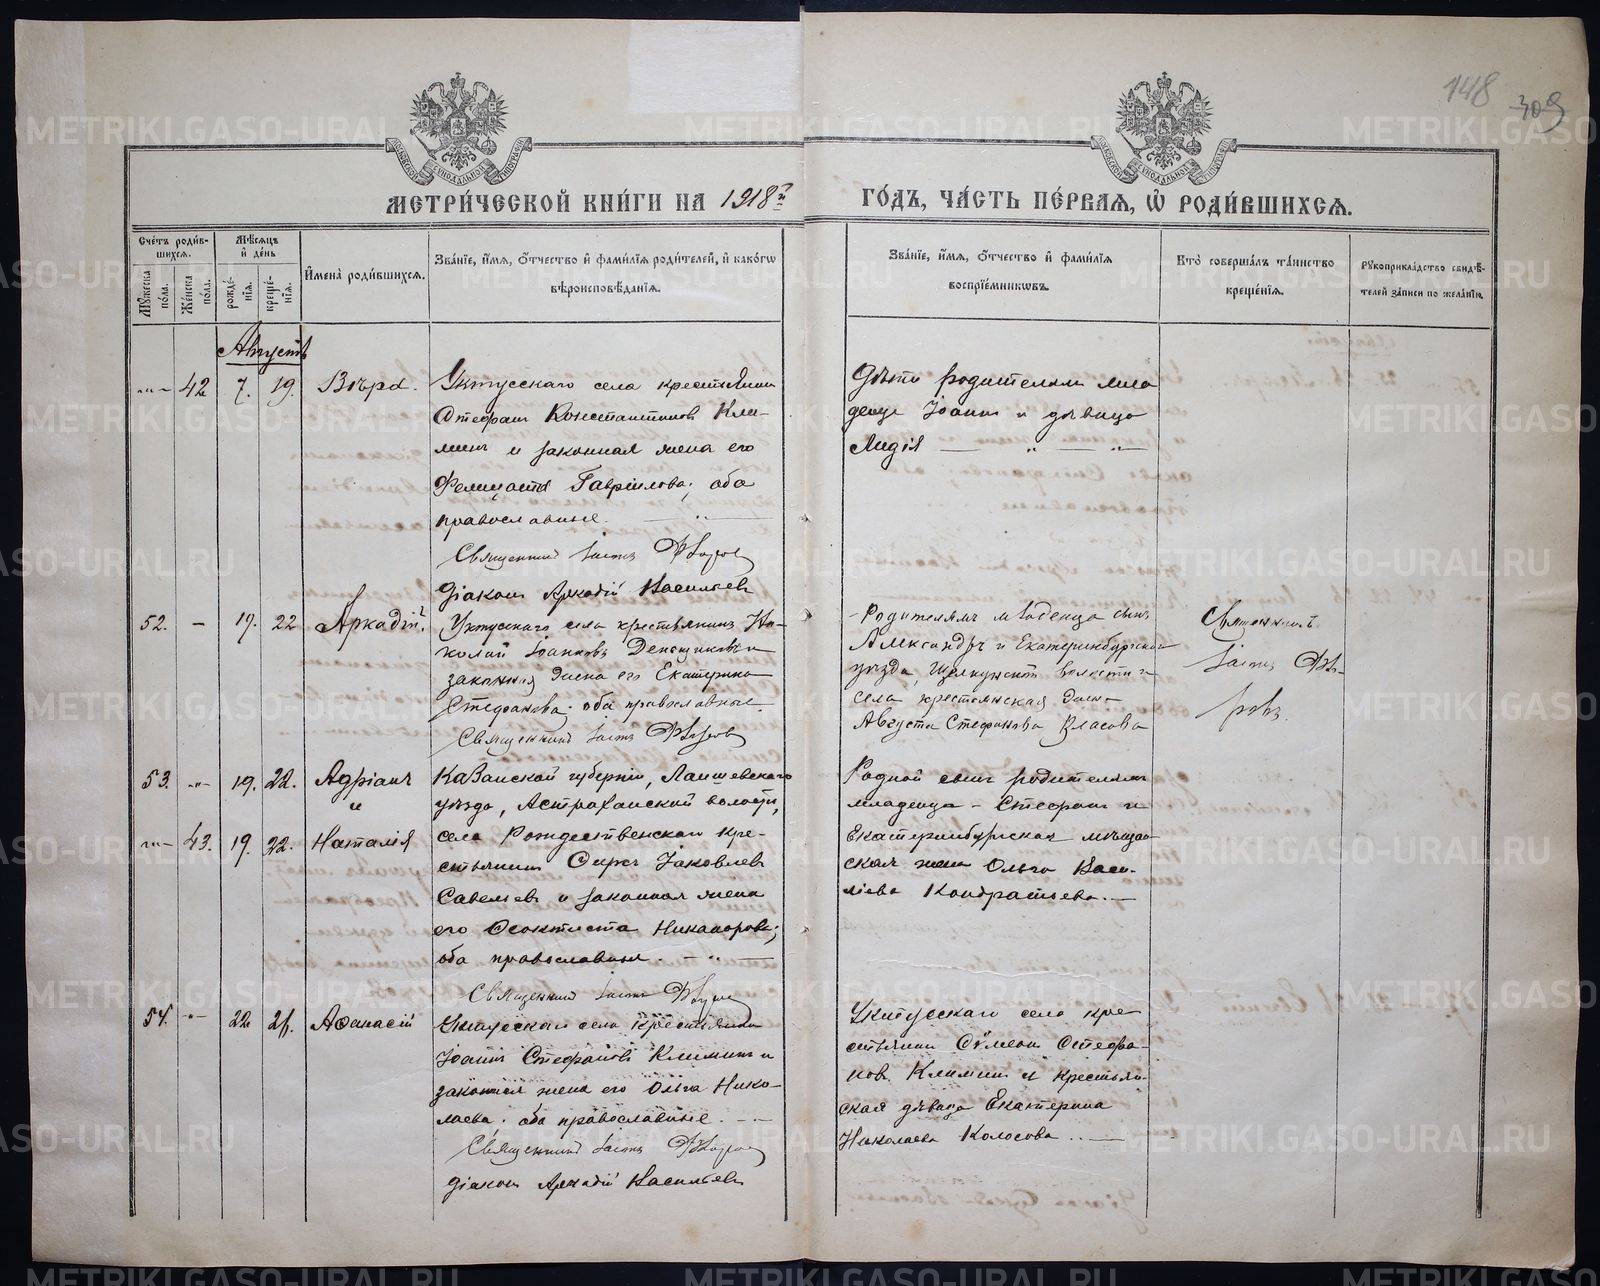 148
309
МЕТРИ́ЧЕСКОЙ КНИ́ГИ НА 1918й ГО́ДЪ, ЧА́СТЬ ПЕ́РВАЯ, Ѡ РОДИ́ВШИХСЯ.
Сче́тъ роди́вшихся.
Мꙋ́жеска по́ла.
Же́нска по́ла.
Мѣ́сяцъ и҆ де́нь
рожде́нїя.
креще́нїя.
И҆мена̀ роди́вшихся.
Зва́нїе, и҆́мя, ѻ҆́тчество и҆ фами́лїя роди́телей, и҆ како́гѡ
вѣроисповѣ́данїя.
Зва́нїе, и҆́мя, ѻ҆́тчество и҆ фами́лїя
воспрїе́мникѡвъ.
Кто̀ соверша́лъ та́инство
креще́нїя.
Рꙋкоприкла́дство свидѣ́-
телей за́писи по жела́нїю.
Августъ
42 7. 19. Вѣра.
Уктусскаго села крестьянин
Стефанъ Константинов Кли-
минъ и законная жена его
Гаврiилова; оба
православные.
Священникъ
Дiаконъ Аркадiй Васильевъ
Дѣти родителям мла
денца Iоаннъ и дѣвица
Лидiя
52. — 19. 22 Аркадiй.
Уктусскаго села крестьянинъ Ни-
колай Iоанновъ Денщиковъ и
законная жена его Екатерина
Стефанова; оба православные.
Священникъ
Родителямъ младенца сынъ
Александръ и Екатеринбургскаго
уѣзда, Щелкунской волости и
села крестьянская жена
Августа Стефанова Власова
Священникъ
53. 19. 22. Адрiанъ
и
43. 19. 22. Наталiя
Казанской губернiи, Лаишевскаго
уѣзда, Астраханской волости,
села Рождественскаго кре-
стьянинъ Сиръ Iаковлевъ
Савельевъ и законная жена
его Ѳеоктиста Никанорова;
оба православныя.
Священникъ
Родной сынъ родителямъ
младенца – Стефанъ и
Екатеринбургская мѣщан-
ская жена Ольга Васи-
льева Кондратьева.
54. 22 26. Аѳанасiй
Уктусскаго села крестьянинъ
Iоаннъ Стефановъ Климинъ и
законная жена его Ольга Нико-
лаева; оба православные.
Священникъ
Дiаконъ Аркадiй Васильевъ
Уктусскаго села кре-
стьянин Сѵмеон Стефа-
нов Климин и крестьян-
ская дѣвица Екатерина
Николаева Колосова.
METRIKI.GASO-URAL.RU